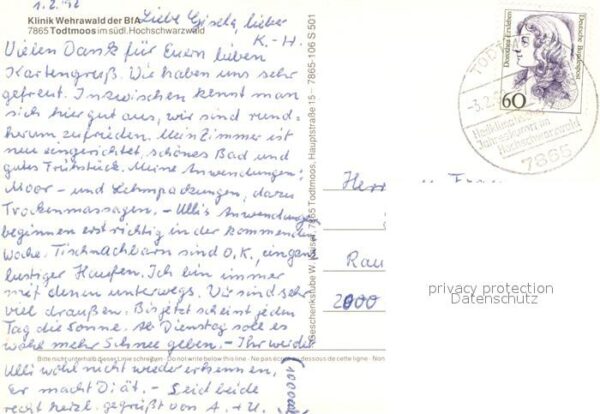 1.2.92
Liebe Gisela, lieber
K.-H.
Klinik Wehrawald der BfA
7865 Todtmoos im südl. Hochschwarzwald
Vielen Dank für Euern lieben
Kartengruß. Wir haben uns sehr
gefreut. Inzwischen kennt man
sich hier gut aus, wir sind rund-
herum zufrieden. Mein Zimmer ist
neu eingerichtet, schönes Bad und
gutes Frühstück. Meine Anwendungen:
Moor- und Lehmpackungen, dazu
Trockenmassagen. - Ulli's Anwendungen
beginnen erst richtig in der kommenden
Woche. Tischnachbarn sind O.K., ein ganz
lustiger Haufen. Ich bin immer
mit denen unterwegs. Wir sind sehr
viel draußen. Bis jetzt scheint jeden
Tag die Sonne. Ab Dienstag soll es
wohl mehr Schnee geben. - Ihr werdet
Bitte nicht unterhalb dieser Linie schreiben · Do not write below this line · Ne pas écrire au dessous de cette ligne · Non
Ulli wohl nicht wieder erkennen,
Er macht Diät. - Seid beide
recht herzl. gegrüßt von A. + U.
(1000
7865-106 S 501
Geschenkstube W. Kaiser, 7865 Todtmoos, Hauptstraße 15
Dorothea Erxleben
Deutsche Bundespost
60
TODT
-3.2.
Hochschwarzwald
7865
Herr
u. Frau
Rau
2000
privacy protection
Datenschutz